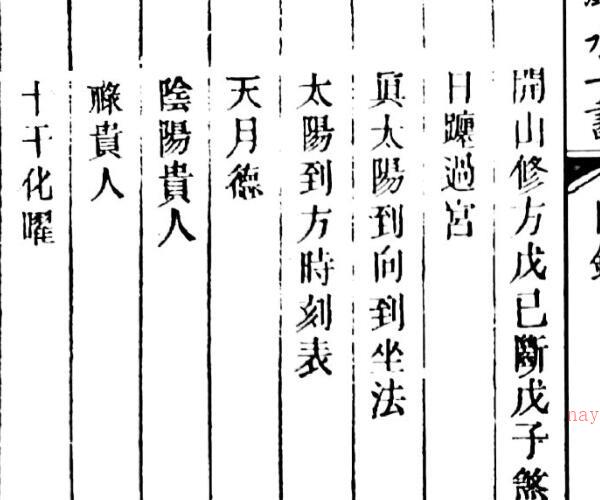 開山修方戊已斷戊子煞
日躔過宮
真太陽到向到坐法
太陽到方時刻表
天月德
陰陽貴人
祿貴人
十干化曜
nay